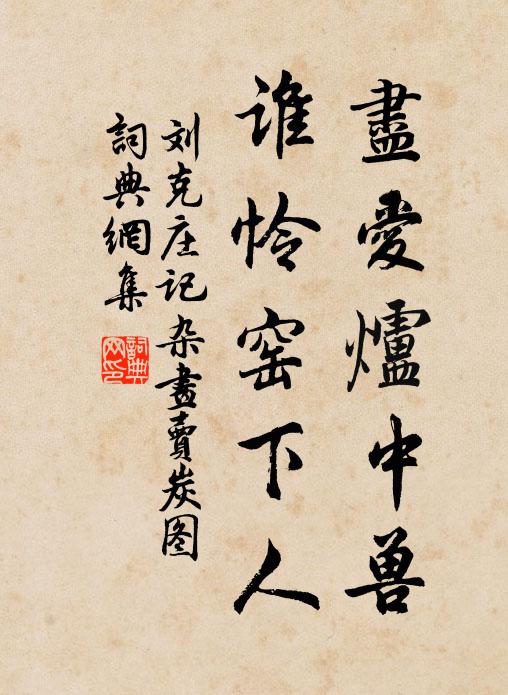 盡愛爐中獸
谁怜窑下人
刘克庄记杂畫賣炭图
詞典網集
詞典網印